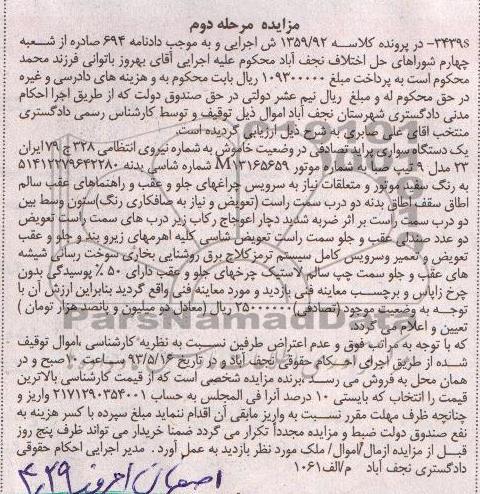 مزایده مرحله دوم
۳۴۳۹S- در پرونده کلاسه ۱۳۵۹/۹۲ ش اجرایی و به موجب دادنامه ۶۹۴ صادره از شعبه
چهارم شوراهای حل اختلاف نجف آباد محکوم علیه اجرایی آقای بهروز باتوانی فرزند محمد
محکوم است به پرداخت مبلغ ۱۰۹۳۰۰۰۰۰ ریال بابت محکوم به و هزینه های دادرسی و غیره
در حق محکوم له و مبلغ ریال نیم عشر دولتی در حق صندوق دولت که از طریق اجرا احکام
مدنی دادگستری شهرستان نجف آباد اموال ذیل توقیف و توسط کارشناس رسمی دادگستری
منتخب آقای علی صابری به شرح ذیل ارزیابی گردیده است.
یک دستگاه سواری پراید تصادفی در وضعیت خاموش به شماره نیروی انتظامی ۳۲۸ ج ۷۹ ایران
۲۳ مدل ۹ تیپ صبا به شماره موتور M۱۳۱۶۵۶۵۹ شماره شاسی بدنه ۵۱۴۱۲۲۷۹۶۴۲۲۸۰
به رنگ سفید موتور و متعلقات نیاز به سرویس چراغهای جلو و عقب و راهنماهای عقب سالم
اطاق سقف اطاق بدنه دو درب سمت راست (تعویض و نیاز به صافکاری رنگ) ستون وسط بین
دو درب سمت راست بر اثر ضربه شدید دچار اعوجاج رکاب زیر درب های سمت راست تعویض
دو عدد صندلی عقب و جلو سمت راست تعویض شاسی کلیه اهرمهای زیرو بند و جلو و عقب
تعویض و تعمیر وسرویس کامل سیستم ترمزکلاج برق روشنایی بخاری سوخت رسانی شیشه
های عقب و جلو سمت چپ سالم لاستیک چرخهای جلو و عقب دارای ۵۰ ٪ پوسیدگی بدون
چرخ زاپاس و برچسب معاینه فنی بازدید و مورد معاینه فنی واقع گردید بنابراین ارزش آن با
توجه به وضعیت موجود (تصادفی) ۲۵۰۰۰۰۰۰ ریال (معادل دو میلیون و پانصد هزار تومان )
تعیین و اعلام می گردد.
که با توجه به مراتب فوق و عدم اعتراض طرفین نسبت به نظریه کارشناسی ،اموال توقیف
شده از طریق اجرای احکام حقوقی نجف آباد و در تاریخ ۹۳/۵/۱۶ ساعت ۱۰ صبح و در
همان محل به فروش می رسد ،برنده مزایده شخصی است که از قیمت کارشناسی بالاترین
قیمت را انتخاب که بایستی ۱۰ درصد آنرا فی المجلس به حساب ۲۱۷۱۲۹۰۳۵۴۰۰۱ واریز و
چنانچه ظرف مهلت مقرر نسبت به واریز مابقی آن اقدام ننماید مبلغ سپرده با کسر هزینه به
نفع صندوق دولت ضبط و مزایده مجدداً تکرار می گردد ضمنا خریدار می تواند ظرف پنج روز
قبل از مزایده ازمال/اموال/ ملک مورد نظر بازدید به عمل آورد . مدیر اجرایی احکام حقوقی
دادگستری نجف آباد م/الف۱۰۶۱
اصفهان امروز ۴,۲۹
ParsNamadData